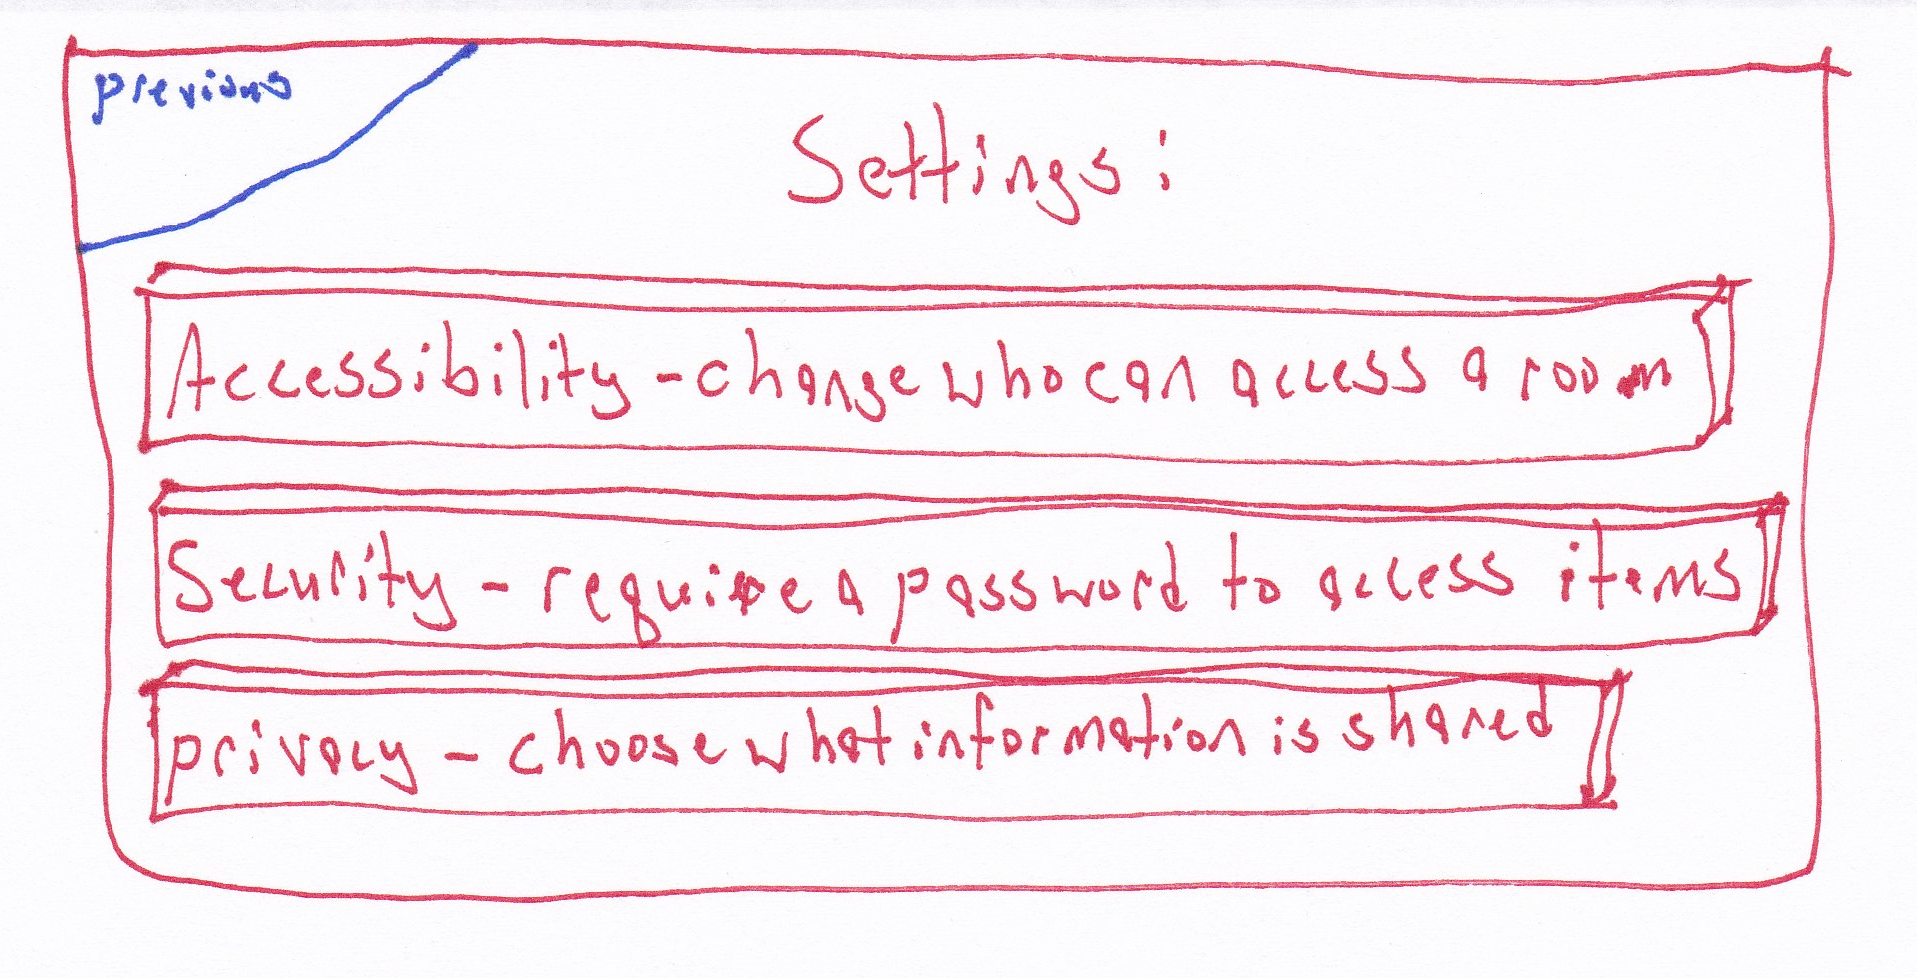 previous
Settings:
Accessibility - change who can access a room
Security - require a password to access items
privacy - choose what information is shared